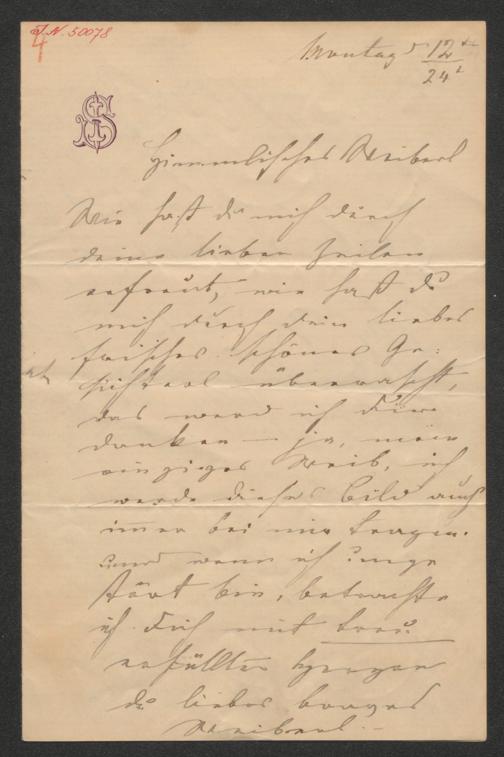 J. N. 50078
4
Montag d 12t
24t
Himmlisches Weiberl
Wie hast du mich durch
deine lieben Zeilen
erfreut, wie hast du
mich durch dein liebes
frisches schönes Ge:
sichterl überrascht,
das werd ich dir
danken – ja, mein
einziges Weib, ich
werde dieses Bild auch
immer bei mir tragen.
und wenn ich unge
stört bin, betrachte
ich dich mit treu
erfüllten Herzen
du liebes braves
Weiberl. –